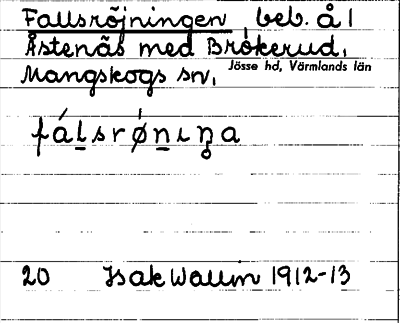 Fallsröjningen, beb. å 1
Åstenäs med Brökerud,
Mangskogs sn, Jösse hd, Värmlands län
fálsrǿnıŋa
20 Isak Wallin 1912-13